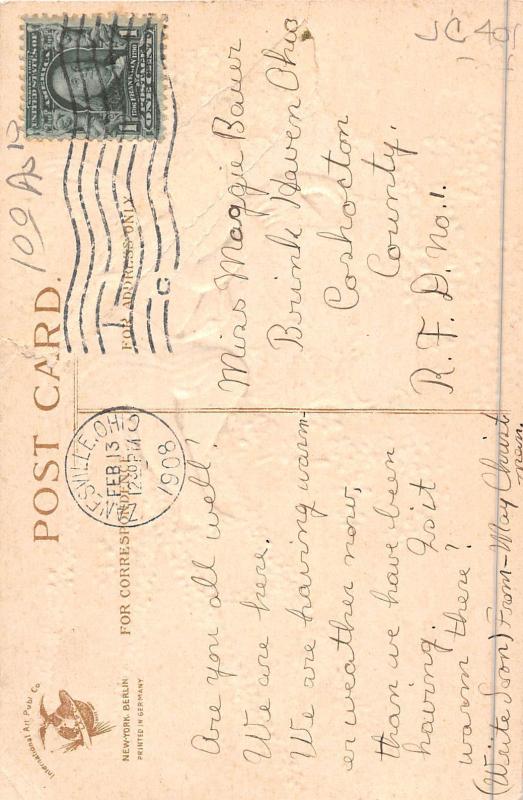 POST CARD.
FOR CORRESPONDENCE
FOR ADDRESS ONLY
UNITED STATES OF AMERICA
1706 FRANKLIN 1790
POSTAGE
ONE CENT
ZANESVILLE, OHIO
FEB 13
12 30 PM
1908
C
International Art Publ. Co.
NEW-YORK BERLIN
PRINTED IN GERMANY
Are you all well?
We are here.
We are having warm-
er weather now,
than we have been
having. Is it
warm there?
(Write Soon) From - May Christ
man.
Miss Maggie Bauer
Brink Haven Ohio
Coshocton
County.
R. F. D. No. 1.